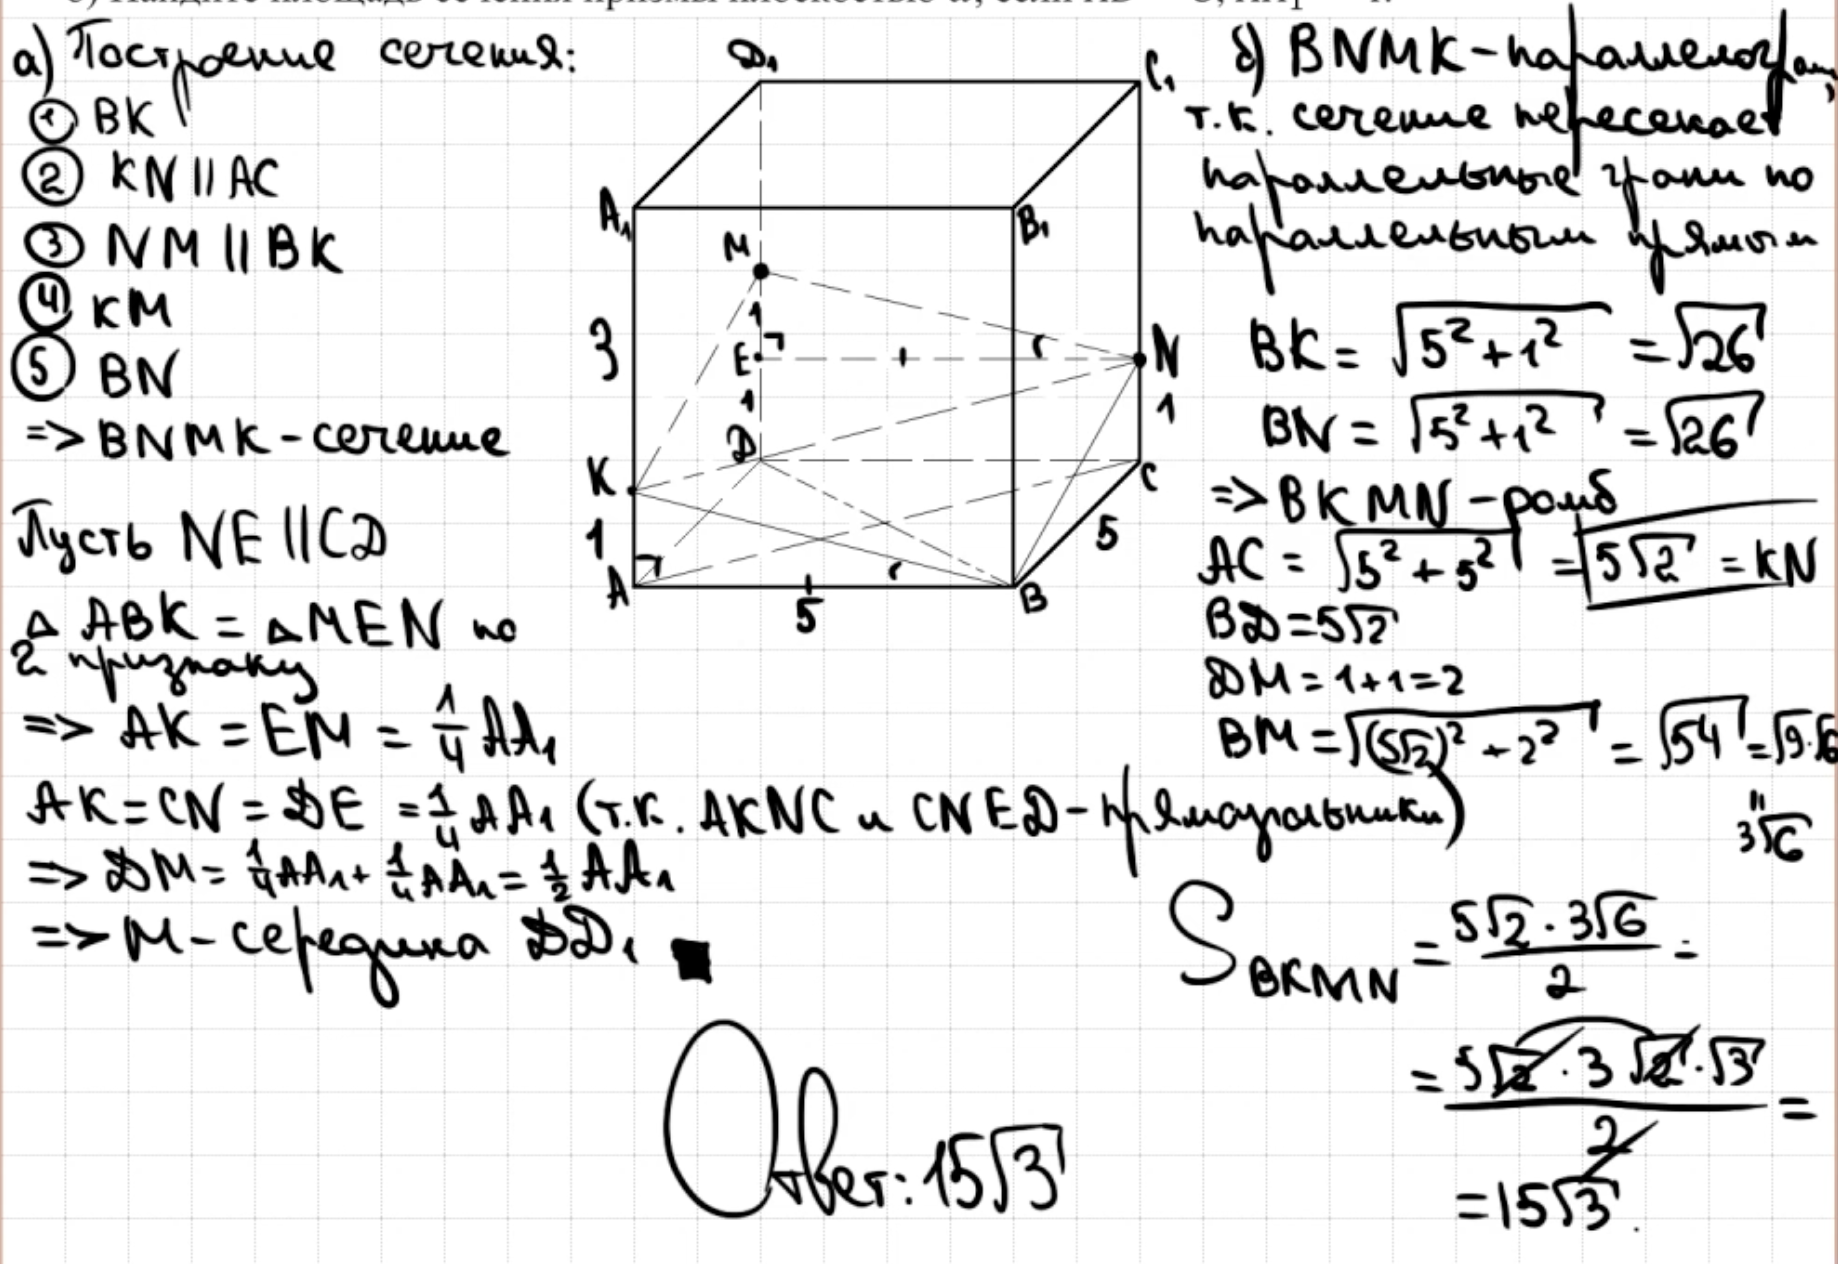 а) Построение сечения:
① BK
② KN || AC
③ NM || BK
④ KM
⑤ BN
=> BNMK - сечение
Пусть NE || CD
△ ABK = △ MEN по
2 признаку
=> AK = EM = 1/4 AA₁
AK = CN = DE = 1/4 AA₁ (т.к. AKNC и CNED - прямоугольники)
=> DM = 1/4 AA₁ + 1/4 AA₁ = 1/2 AA₁
=> M - середина DD₁ ■
D₁
C₁
A₁
B₁
M
1
3
E
N
1
1
D
K
C
1
5
A
B
5
б) BNMK - параллелограмм,
т.к. сечение пересекает
параллельные грани по
параллельным прямым
BK = √(5² + 1²) = √26
BN = √(5² + 1²) = √26
=> BKMN - ромб
AC = √(5² + 5²) = 5√2 = KN
BD = 5√2
DM = 1 + 1 = 2
BM = √((5√2)² + 2²) = √54 = √9·6
"
3√6
S BKMN = (5√2 · 3√6)/2 =
= (5√2 · 3√2 · √3)/2 =
= 15√3.
Ответ: 15√3